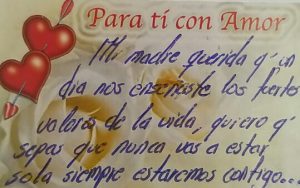 Para tí con Amor
Mi madre querida q' un
dia nos enseñaste los fuertes
valores de la vida, quiero q'
sepas que nunca vas a estar
sola siempre estaremos contigo...